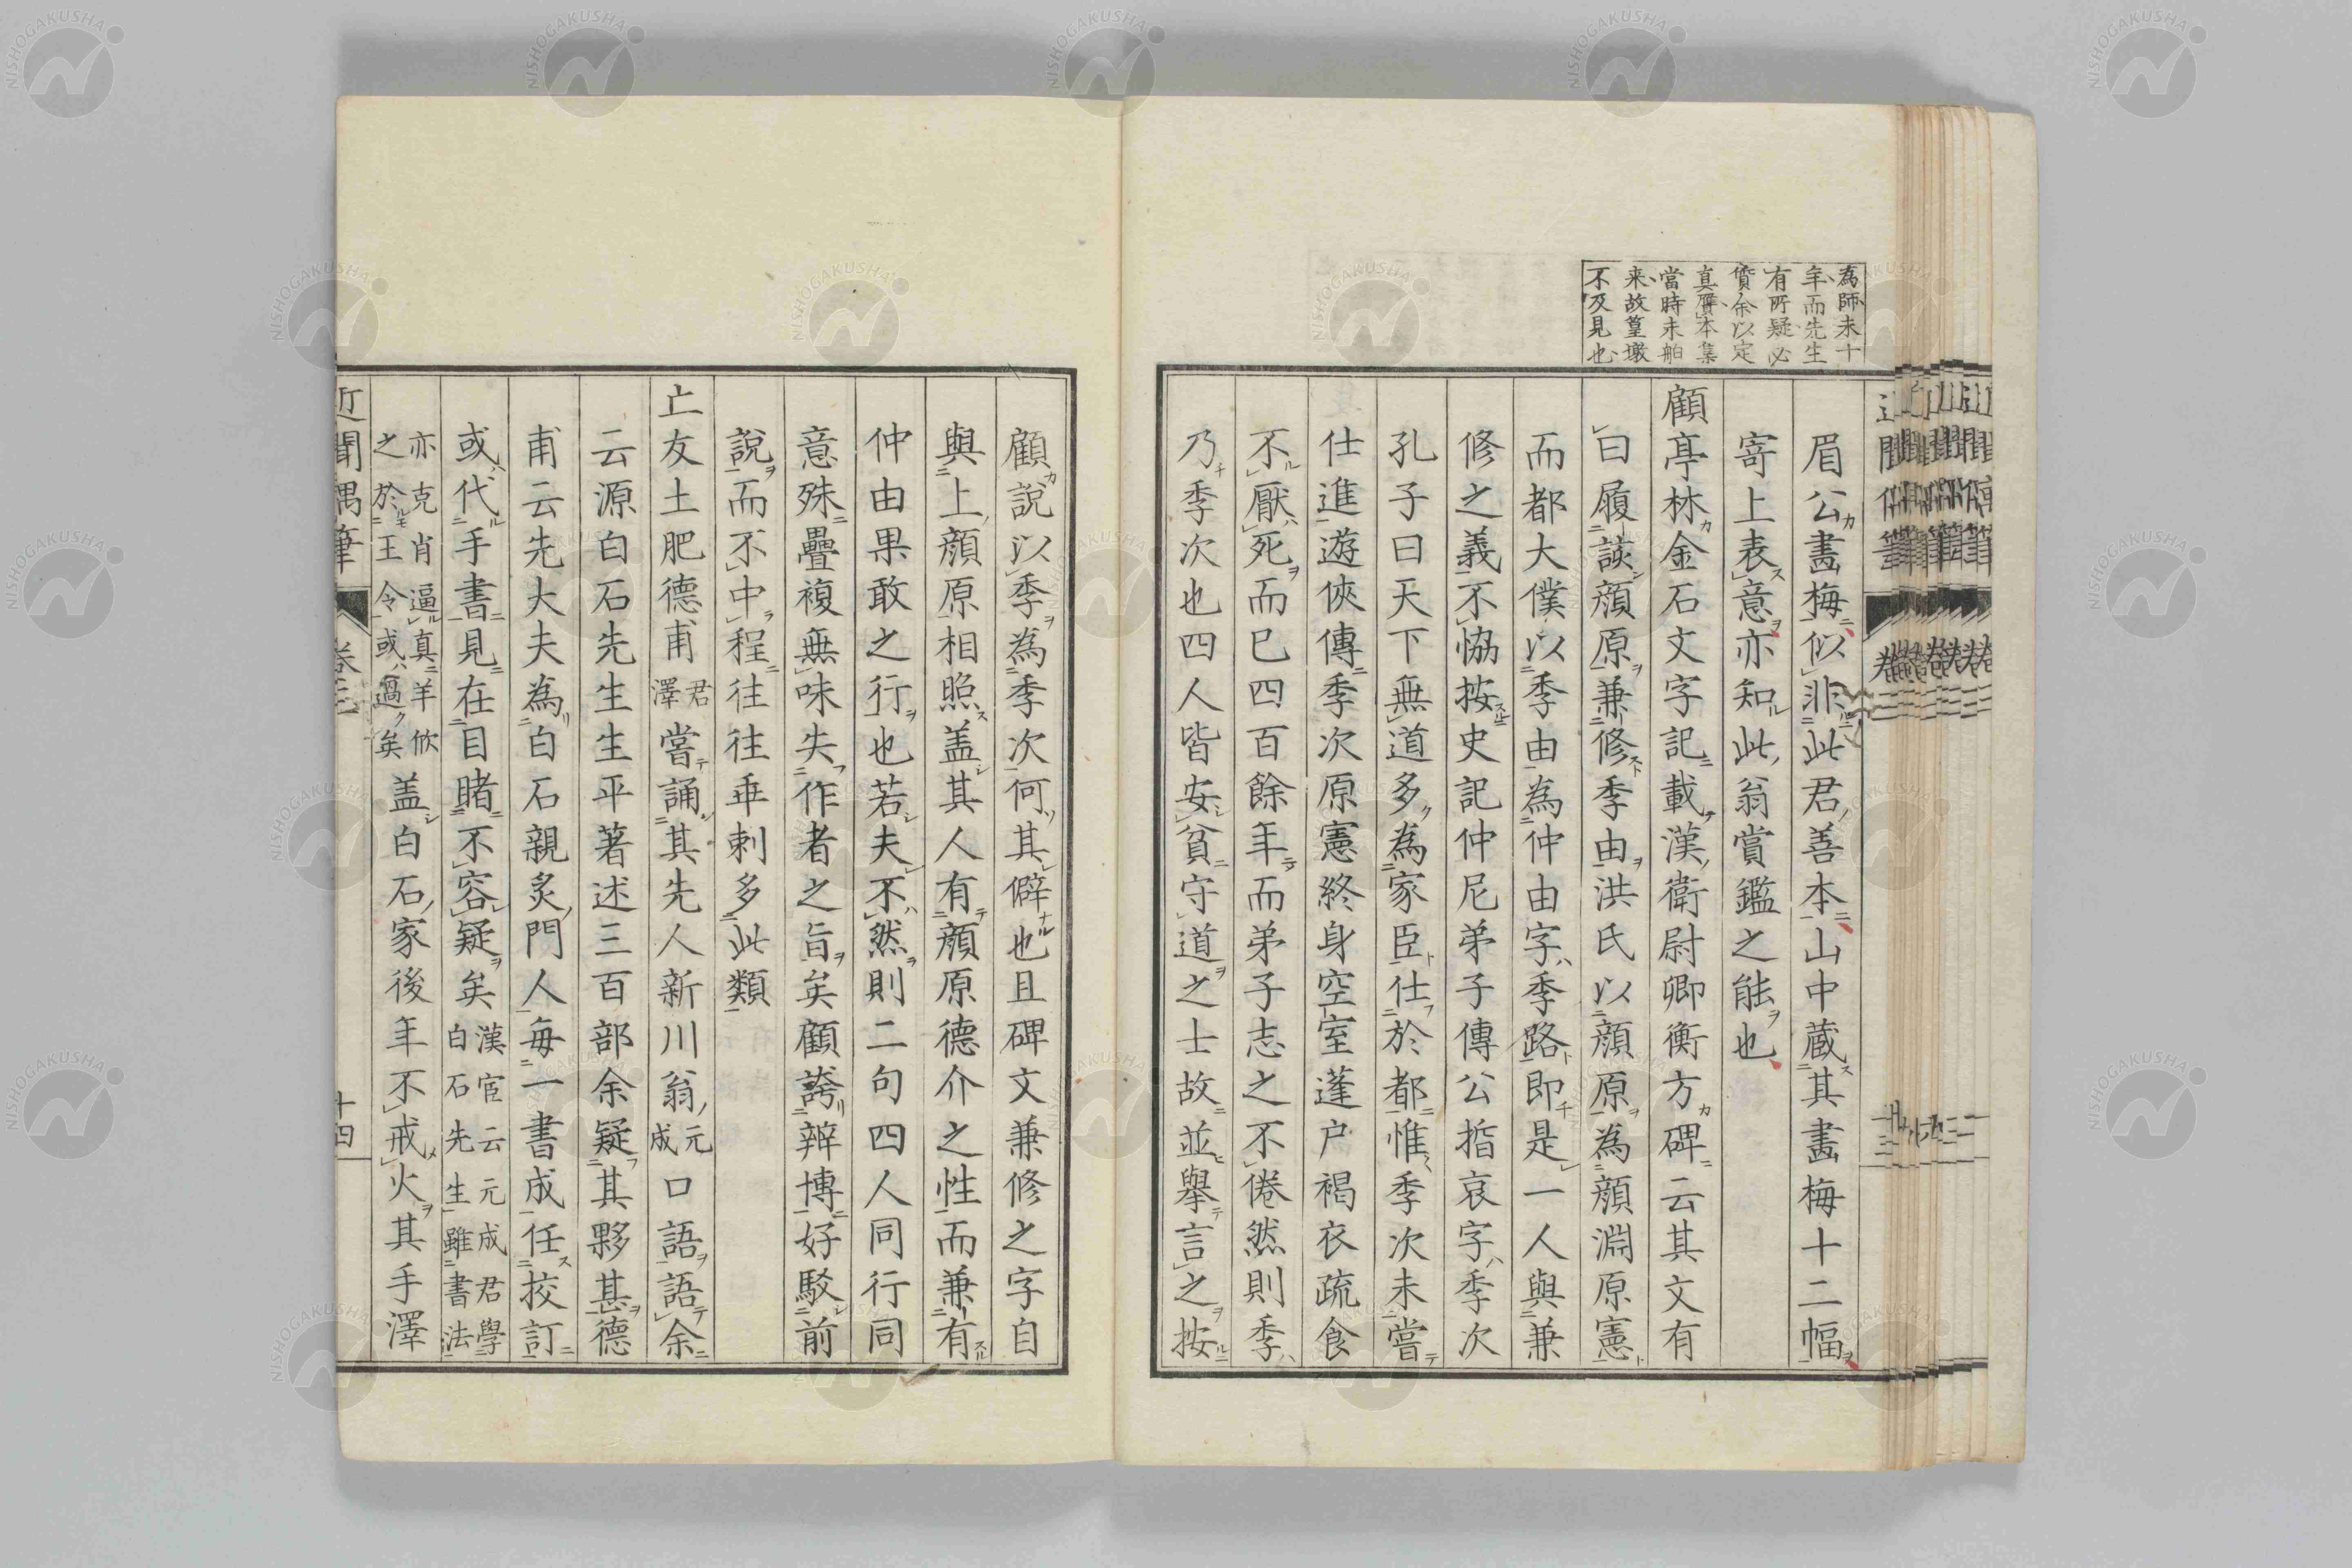 為師未十
年而先生
有所疑必
質余以定
真贋本集
當時未舶
来故篁墩
不及見也
眉公畵梅似非此君善本山中蔵其畵梅十二幅
寄上表意亦知此翁賞鑑之能也
顧亭林金石文字記載漢衛尉卿衡方碑云其文有
曰履談顔原兼修季由洪氏以顔原為顔淵原憲
而都大僕以季由為仲由字季路即是一人與兼
修之義不協按史記仲尼弟子傳公晳哀字季次
孔子曰天下無道多為家臣仕於都惟季次未嘗
仕進遊俠傳季次原憲終身空室蓬户褐衣疏食
不厭死而已四百餘年而弟子志之不倦然則季
乃季次也四人皆安貧守道之士故並舉言之按
顧説以季為季次何其僻也且碑文兼修之字自
與上顔原相照盖其人有顔原德介之性而兼有
仲由果敢之行也若夫不然則二句四人同行同
意殊疊複無味失作者之旨矣顧誇辨博好駁前
説而不中程往往乖剌多此類
亡友土肥德甫君澤嘗誦其先人新川翁元成口語語余
云源白石先生生平著述三百部余疑其夥甚德
甫云先大夫為白石親炙門人毎一書成任挍訂
或代手書見在目睹不容疑矣漢宦云元成君學白石先生雖書法
亦克肖逼真羊攸之於王令或過矣盖白石家後年不戒火其手澤
近聞偶筆 卷三 十四